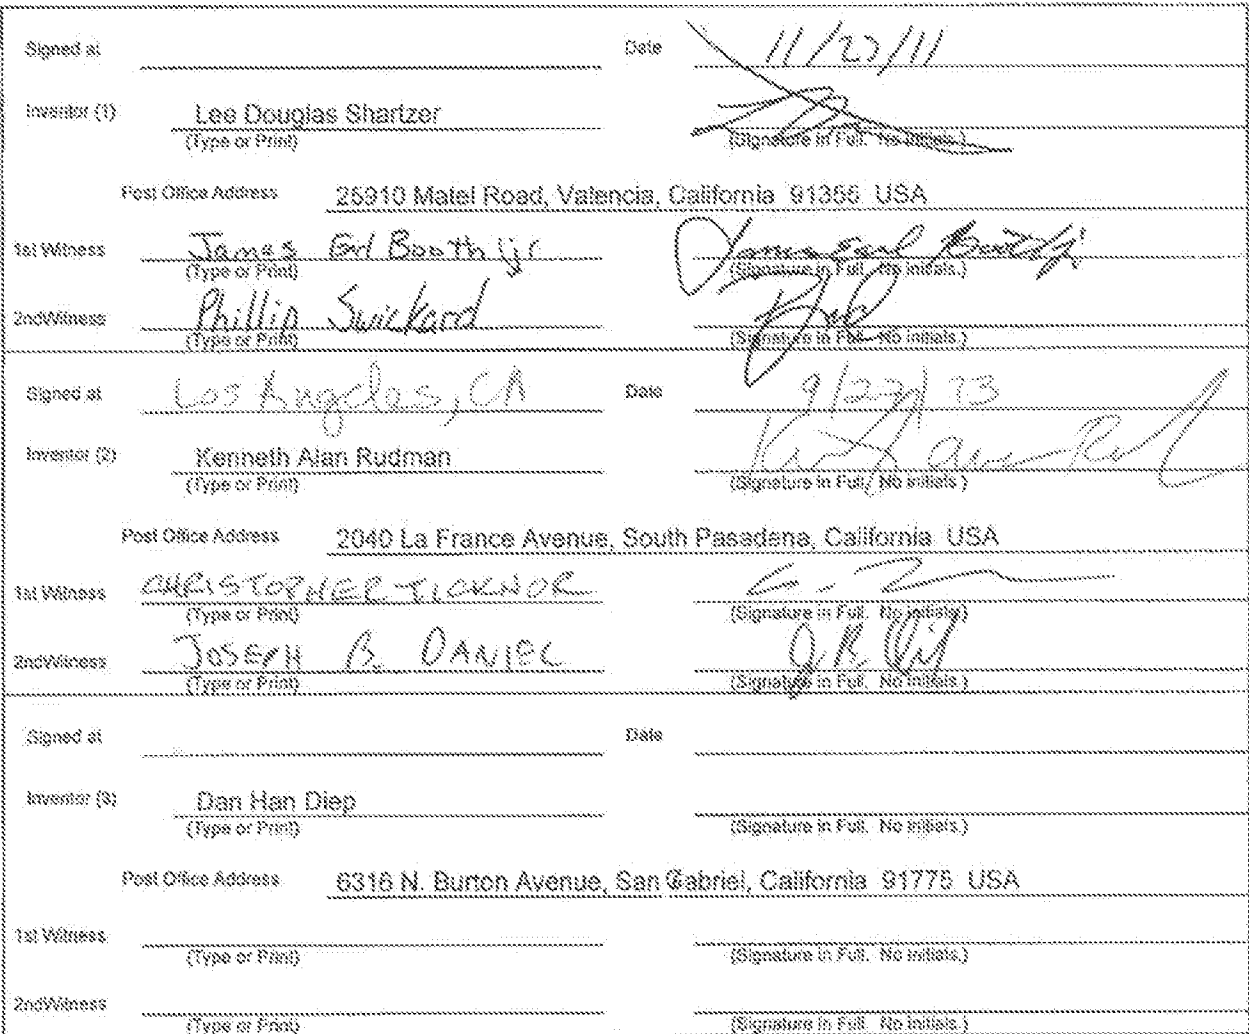 Signed at Date 11/23/11
Inventor (1) Lee Douglas Shartzer
(Type or Print) (Signature in Full. No initials.)
Post Office Address 25910 Matel Road, Valencia, California 91355 USA
1st Witness James Earl Booth jr
(Type or Print) (Signature in Full. No initials.)
2ndWitness Phillip Swickard
(Type or Print) (Signature in Full. No initials.)
Signed at Los Angeles, CA Date 9/27/13
Inventor (2) Kenneth Alan Rudman
(Type or Print) (Signature in Full. No initials.)
Post Office Address 2040 La France Avenue, South Pasadena, California USA
1st Witness CHRISTOPHER TICKNOR
(Type or Print) (Signature in Full. No initials)
2ndWitness JOSEPH B. DANIEL
(Type or Print) (Signature in Full. No initials.)
Signed at Date
Inventor (3) Dan Han Diep
(Type or Print) (Signature in Full. No initials.)
Post Office Address 6316 N. Burton Avenue, San Gabriel, California 91775 USA
1st Witness
(Type or Print) (Signature in Full. No initials.)
2ndWitness
(Type or Print) (Signature in Full. No initials.)